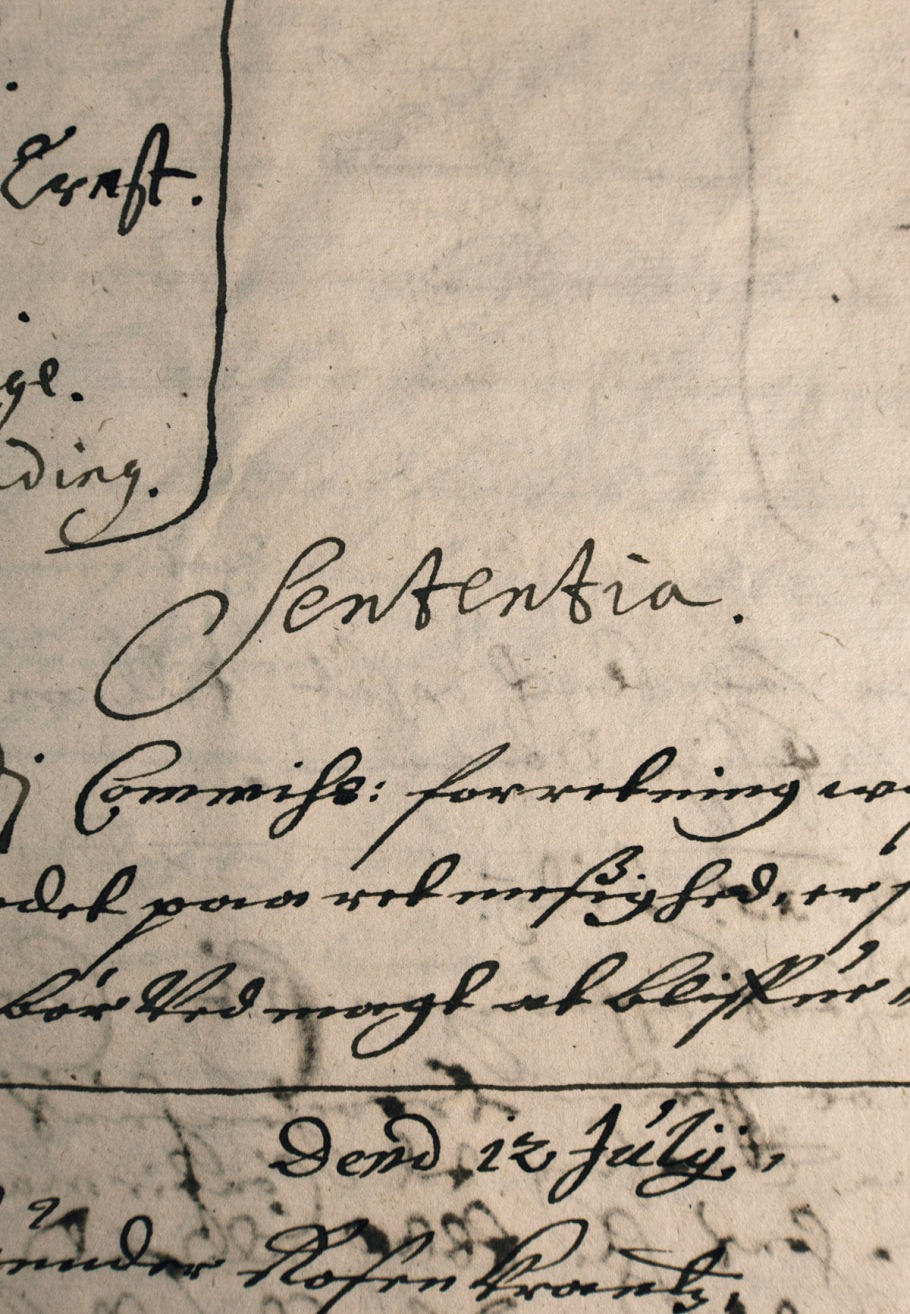 Ernst.
ge.
ding.
Sententia.
Commihs: forretning
det paa retmesighed, er
bör Ved magt at bliffue
Dend 12 Julij,
Rosenkrantz,